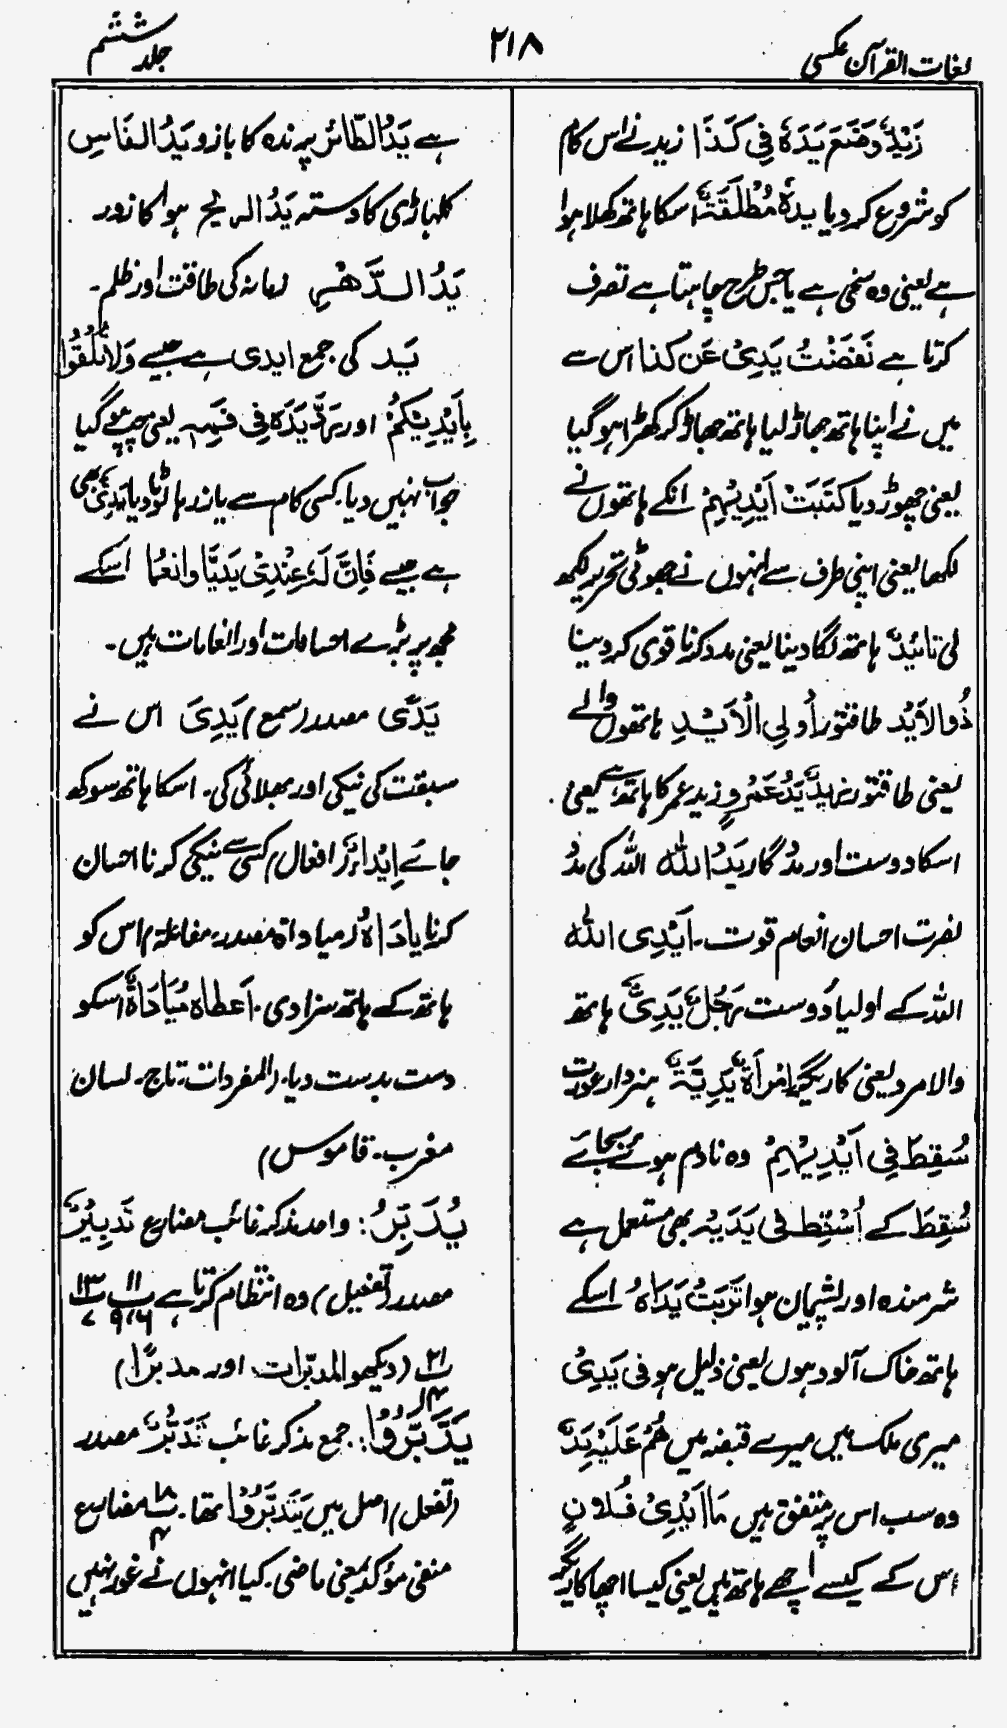 لغات القرآن عکسی
۲۱۸
جلد ششم
زَیْدٌ وَضَعَ یَدَہٗ فِی کَذَا زید نے اس کام
کو شروع کر دیا یدہٗ مُطْلَقَۃٌ اسکا ہاتھ کھلا ہوا
ہے یعنی وہ سخی ہے یا جس طرح چاہتا ہے تصرف
کرتا ہے نَفَضْتُ یَدِیْ عَن کذا اس سے
میں نے اپنا ہاتھ جھاڑ لیا ہاتھ جھاڑ کر کھڑا ہو گیا
یعنی چھوڑ دیا کَتَبَتْ اَیْدِیْہِمْ انکے ہاتھوں نے
لکھا یعنی اپنی طرف سے انہوں نے جھوٹی تحریر لکھ
لی تائیدٌ ہاتھ لگا دینا یعنی مدد کرنا قوی کر دینا
ذُوالاَیْد طاقتور اُولِی الْاَیْدِ ہاتھوں والے
یعنی طاقتور زیدٌ یَدُ عَمْرٍو زید عمر کا ہاتھ ہے یعنی
اسکا دوست اور مددگار یَدُ اللہ اللہ کی مدد
نصرت احسان انعام قوت۔ اَیْدِی اللہ
اللہ کے اولیا دوست رَجُلٌ یَدِیٌّ ہاتھ
والا مرد یعنی کاریگر اِمْرَأَۃٌ یَدِیَّۃٌ ہنردار عورت
سُقِطَ فِی اَیْدِیْہِمْ وہ نادم ہوئے بجائے
سُقِطَ کے اُسْقِطَ فی یَدَیْہِ بھی مستعمل ہے
شرمندہ اور پشیمان ہوا تَرِبَتْ یَدَاہُ اسکے
ہاتھ خاک آلود ہوں یعنی ذلیل ہو فی یَدِیْ
میری ملک میں میرے قبضہ میں ھُمْ عَلَیْہِ یَدٌ
وہ سب اس پر متفق ہیں مَا اَیْدِیْ فُلَانٍ
اس کے کیسے اچھے ہاتھ ہیں یعنی کیسا اچھا کاریگر
ہے یَدُ الطَّائِرِ پرندہ کا بازو یَدُ الفَاسِ
کلہاڑی کا دستہ یَدُ الریح ہوا کا زور
یَدُ الدَّھْرِ زمانہ کی طاقت اور ظلم۔
یَد کی جمع ایدی ہے جیسے وَلَا تُلْقُوْا
بِاَیْدِیْکُمْ اور رَدَّ یَدَہٗ فِی فَمِہٖ یعنی چپ ہو گیا
جواب نہیں دیا۔ کسی کام سے باز رہا لوٹا دیا یَدِیٌّ بھی
ہے جیسے فَاِنَّ لَہٗ عِنْدِیْ یَدِیًّا وانعمًا اسکے
مجھ پر بڑے احسانات اور انعامات ہیں۔
یَدًی مصدر (سمع) یَدِیَ اس نے
سبقت کی نیکی اور بھلائی کی۔ اسکا ہاتھ سوکھ
جائے اِیْدَاءٌ (افعال) کسی سے نیکی کرنا احسان
کرنا یَادَاہُ (میاداۃ مصدر۔ مفاعلۃ) اس کو
ہاتھ کے ہاتھ سزا دی۔ اَعطاہ مُیَادَاۃً اسکو
دست بدست دیا۔ (المفردات۔ تاج۔ لسان
مغرب۔ قاموس)
یُدَبِّرُ: واحد مذکر غائب مضارع تَدبِیْرٌ
مصدر (تفعیل) وہ انتظام کرتا ہے پ۱۱/۶،۹ پ۱۳/۷
پ۲۱/۱۴ (دیکھو المدبّرات اور مدبرًا)
یَدَّبَّرُوْا: جمع مذکر غائب تَدَبُّرٌ مصدر
(تفعل) اصل میں یَتَدَبَّرُوْا تھا۔ پ۱۸/۴ مضارع
منفی مؤکد بمعنی ماضی۔ کیا انہوں نے غور نہیں